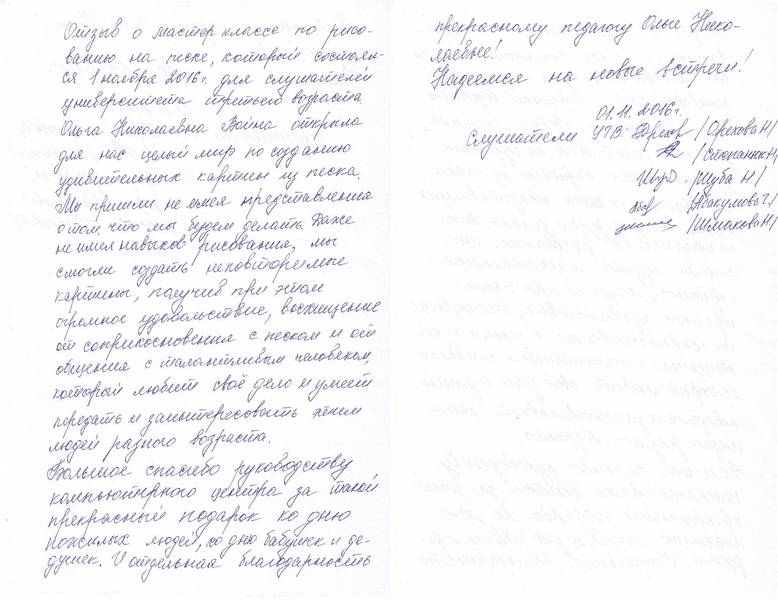 Отзыв о мастер классе по рисо-
ванию на песке, который состоял-
ся 1 ноября 2016г. для слушателей
университета третьего возраста.
Ольга Николаевна Война открыла
для нас целый мир по созданию
удивительных картин из песка.
Мы пришли не имея представления
о том что мы будем делать. Даже
не имея навыков рисования, мы
смогли создать неповторимые
картины, получив при этом
огромное удовольствие, восхищение
от соприкосновения с песком и от
общения с талантливым человеком,
который любит своё дело и умеет
передать и заинтересовать этим
людей разного возраста.
Большое спасибо руководству
компьютерного центра за такой
прекрасный подарок ко дню
пожилых людей, ко дню бабушек и де-
душек. И отдельная благодарность
прекрасному педагогу Ольге Нико-
лаевне!
Надеемся на новые встречи!
01.11.2016г.
Слушатели УТВ: /Орехова Н/
/Степанюк Н/
/Шуба Н/
/Абакумова Г/
/Шмакова Н/